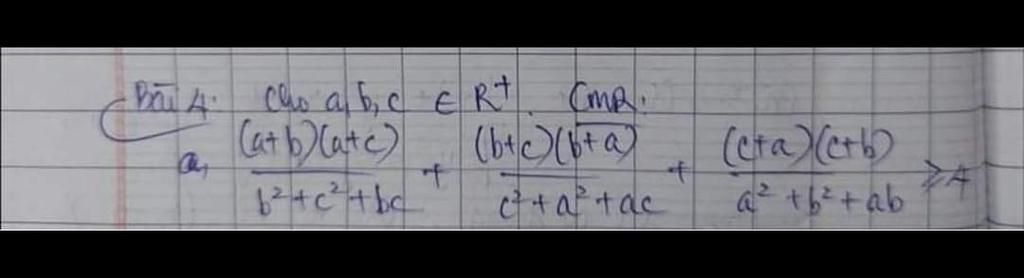 Bài 4. Cho a, b, c ∈ R⁺. CMR:
a, (a+b)(a+c)/(b²+c²+bc) + (b+c)(b+a)/(c²+a²+ac) + (c+a)(c+b)/(a²+b²+ab) ≥ 4